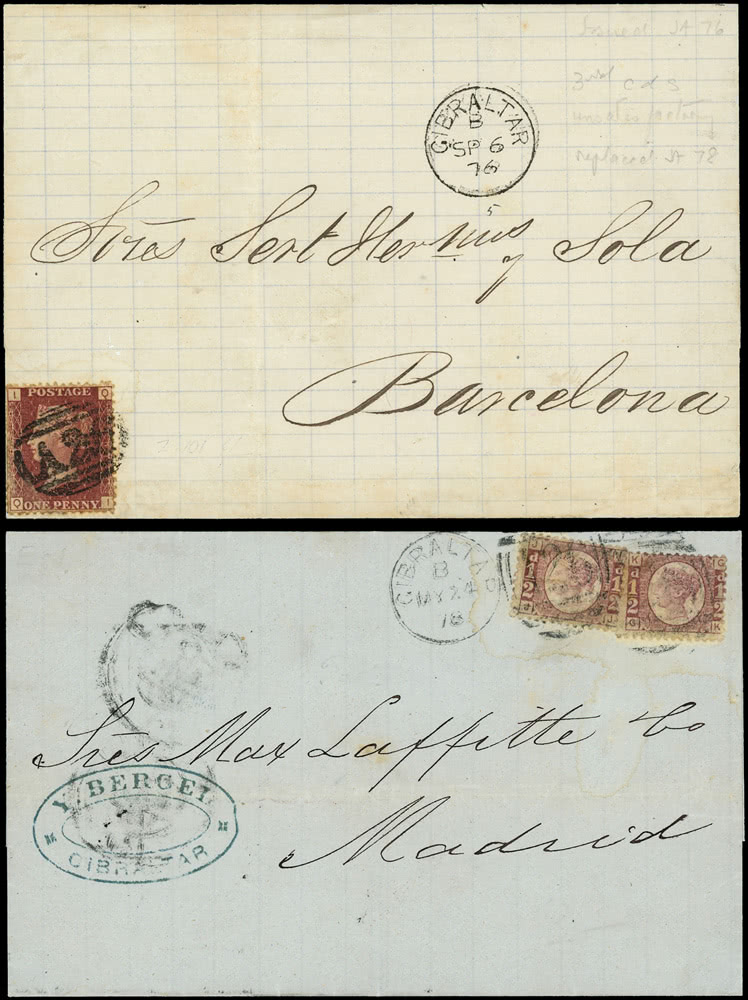 Issued JA 76
3rd CDS
replaced JA 78
GIBRALTAR
B
SP 6
76
5
Sres Sert Hermnos y Sola
Barcelona
I Q
POSTAGE
A26
Q I
ONE PENNY
GIBRALTAR
B
MY 24
78
J
½d ½d
J
K G
½d ½d
G K
Sres Max Laffitte Co
Y. BERGEL
GIBRALTAR
Madrid